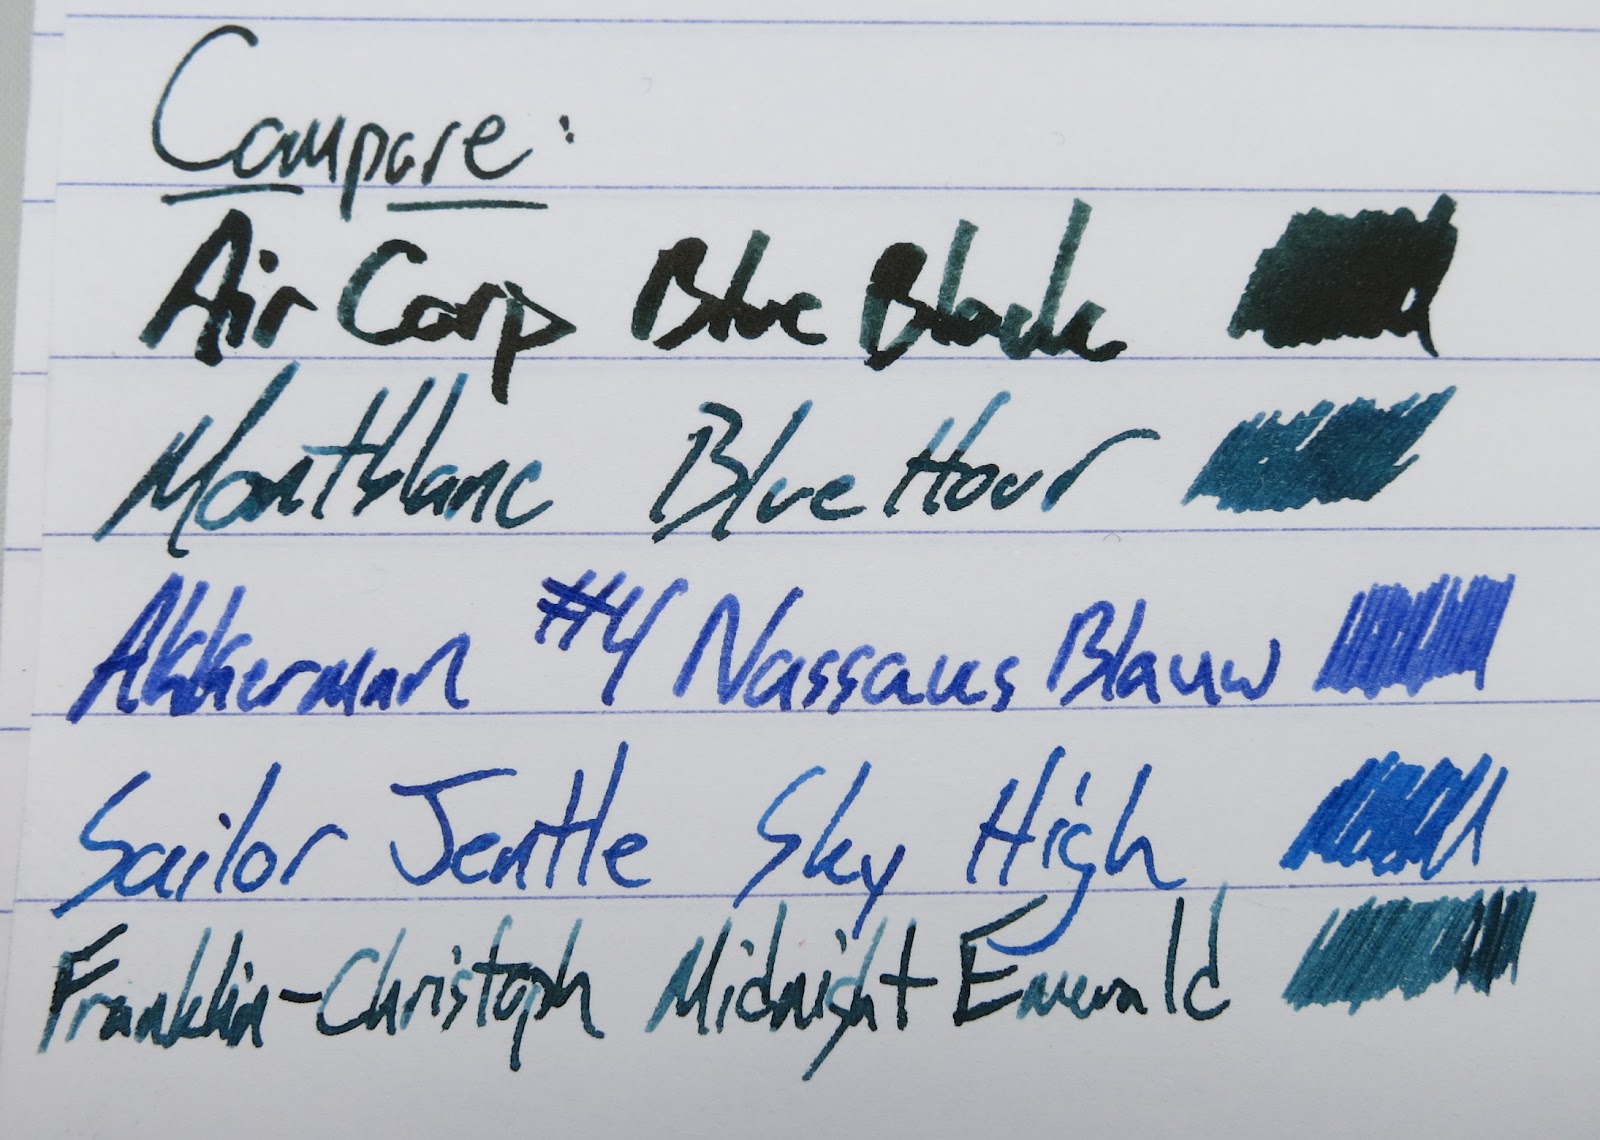 Compare:
Air Corp Blue Black
Montblanc Blue Hour
Akkerman #4 Nassaus Blauw
Sailor Jentle Sky High
Franklin-Christoph Midnight Emerald